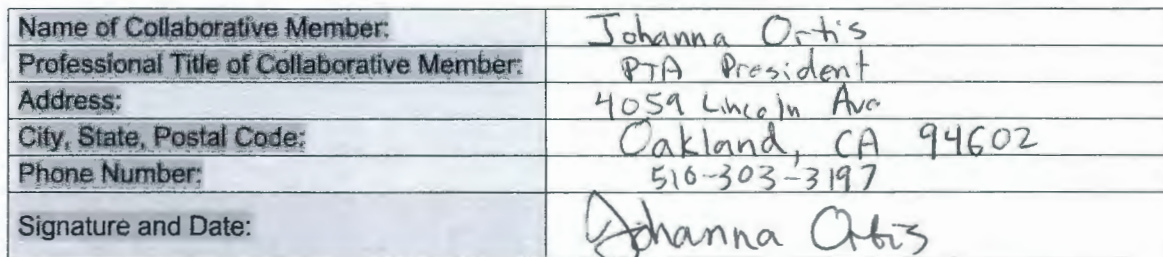 Name of Collaborative Member: Johanna Ortis
Professional Title of Collaborative Member: PTA President
Address: 4059 Lincoln Ave
City, State, Postal Code: Oakland, CA 94602
Phone Number: 510-303-3197
Signature and Date: Johanna Ortis